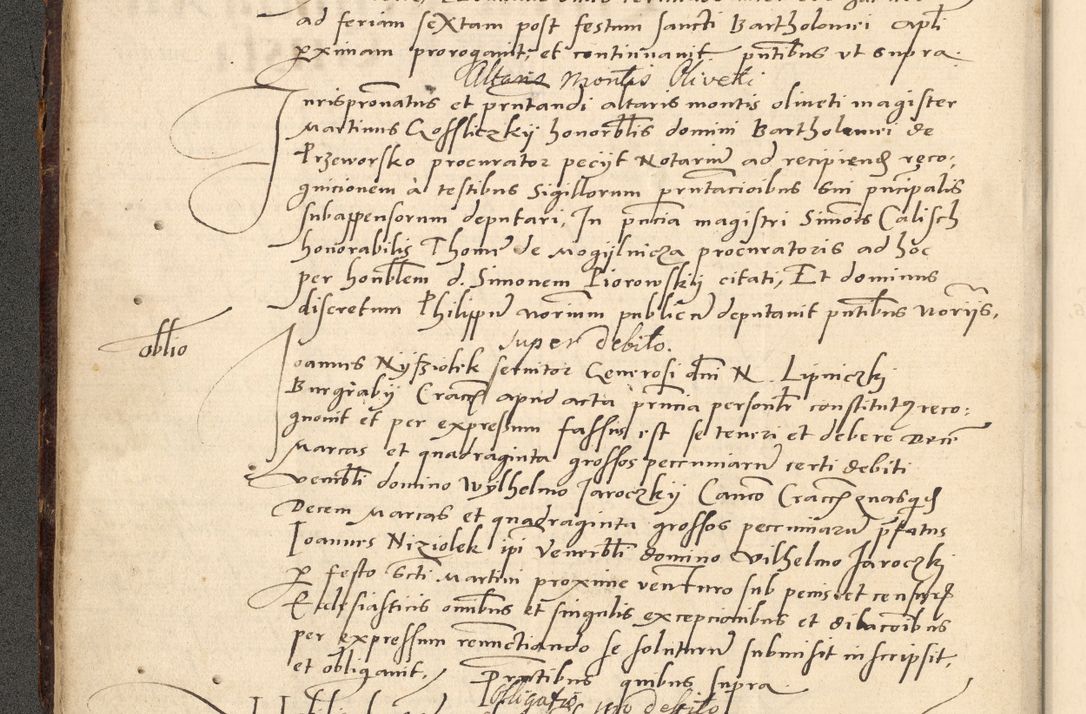 ad feriam sextam post festum sancti Bartholomei apli
pximam prorogavit, et continuavit pntibus ut supra.
Altaris montis Oliveti
Jurispronatus et pntandi altaris montis oliveti magister
Martinus Gossliczkÿ honorblis domini Bartholomei de
Przeworsko procurator pecijt Notarium ad recipiend reco:
gnicionem à testibus Sigillorum pntacioibus sui pncipalis
subappensorum deputari, In pncia magistri Simonis Calisch
honorabilis Thome de Mogÿlnicza procuratoris ad hoc
per honblem d. Simonem Piorowskÿ citati, Et dominus
discretum Philippum norium publicum deputavit pntibus noriis.
super debito.
oblio
Joannes Nÿsziolek servitor Generosi dni N. Lipniczkj
Burgrabÿ Cracoñ apud acta pncia personlr constitutus reco:
gnovit et per expressum fassus est se teneri et debere decem
Marcas et quadraginta grossos pecuniarum certi debiti
venerbli domino Wÿlhelmo Jaroczkÿ Canco Cracoñ quasquid
Decem Marcas et quadraginta grossos pecuniarum pfatus
Joannes Niziolek ipi Venerbli domino Vilhelmo Jaroczkj
p festo Scti Martini proxime venturo sub penis et censuris
Ecclesiasticis omibus et singulis excepcionibus et dilacoibus
per expressum renunctiando se soluturum submisit inscripsit,
et obligavit, Pntibus quibus supra
Obligatio pro debito